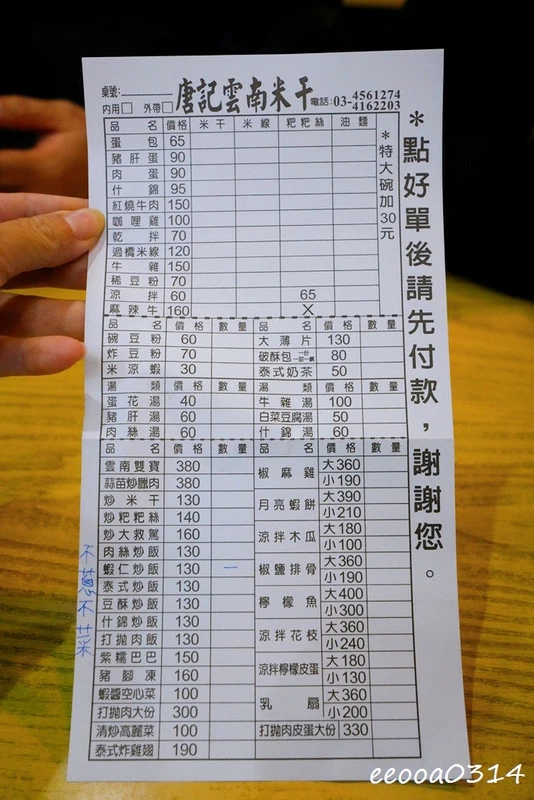 桌號:
內用□ 外帶□ 唐記雲南米干 電話:03-4561274
03-4162203
品名 價格 米干 米線 粑粑絲 油麵
蛋包 65
豬肝蛋 90
肉蛋 90
什錦 95
紅燒牛肉 150
咖哩雞 100
乾拌 70
過橋米線 120
牛雜 150
稀豆粉 70
涼拌 60 65
麻辣牛 160 X
*特大碗加30元
品名 價格 數量 品名 價格 數量
碗豆粉 60 大薄片 130
炸豆粉 70 破酥包 80
米涼蝦 30 泰式奶茶 50
湯類 價格 數量 湯類 價格 數量
蛋花湯 40 牛雜湯 100
豬肝湯 60 白菜豆腐湯 50
肉絲湯 60 什錦湯 60
品名 價格 數量 品名 價格 數量
雲南雙寶 380 椒麻雞 大360
蒜苗炒臘肉 380 小190
炒米干 130 月亮蝦餅 大390
炒粑粑絲 140 小210
炒大救駕 160 涼拌木瓜 大180
肉絲炒飯 130 小100
蝦仁炒飯 130 一 椒鹽排骨 大360
泰式炒飯 130 小190
豆酥炒飯 130 檸檬魚 大400
什錦炒飯 130 小300
打拋肉飯 130 涼拌花枝 大360
紫糯巴巴 150 小240
豬腳凍 160 涼拌檸檬皮蛋 大180
蝦醬空心菜 100 小130
打拋肉大份 300 乳扇 大360
清炒高麗菜 100 小200
泰式炸雞翅 190 打拋肉皮蛋大份 330
*點好單後請先付款，謝謝您。
eeooa0314